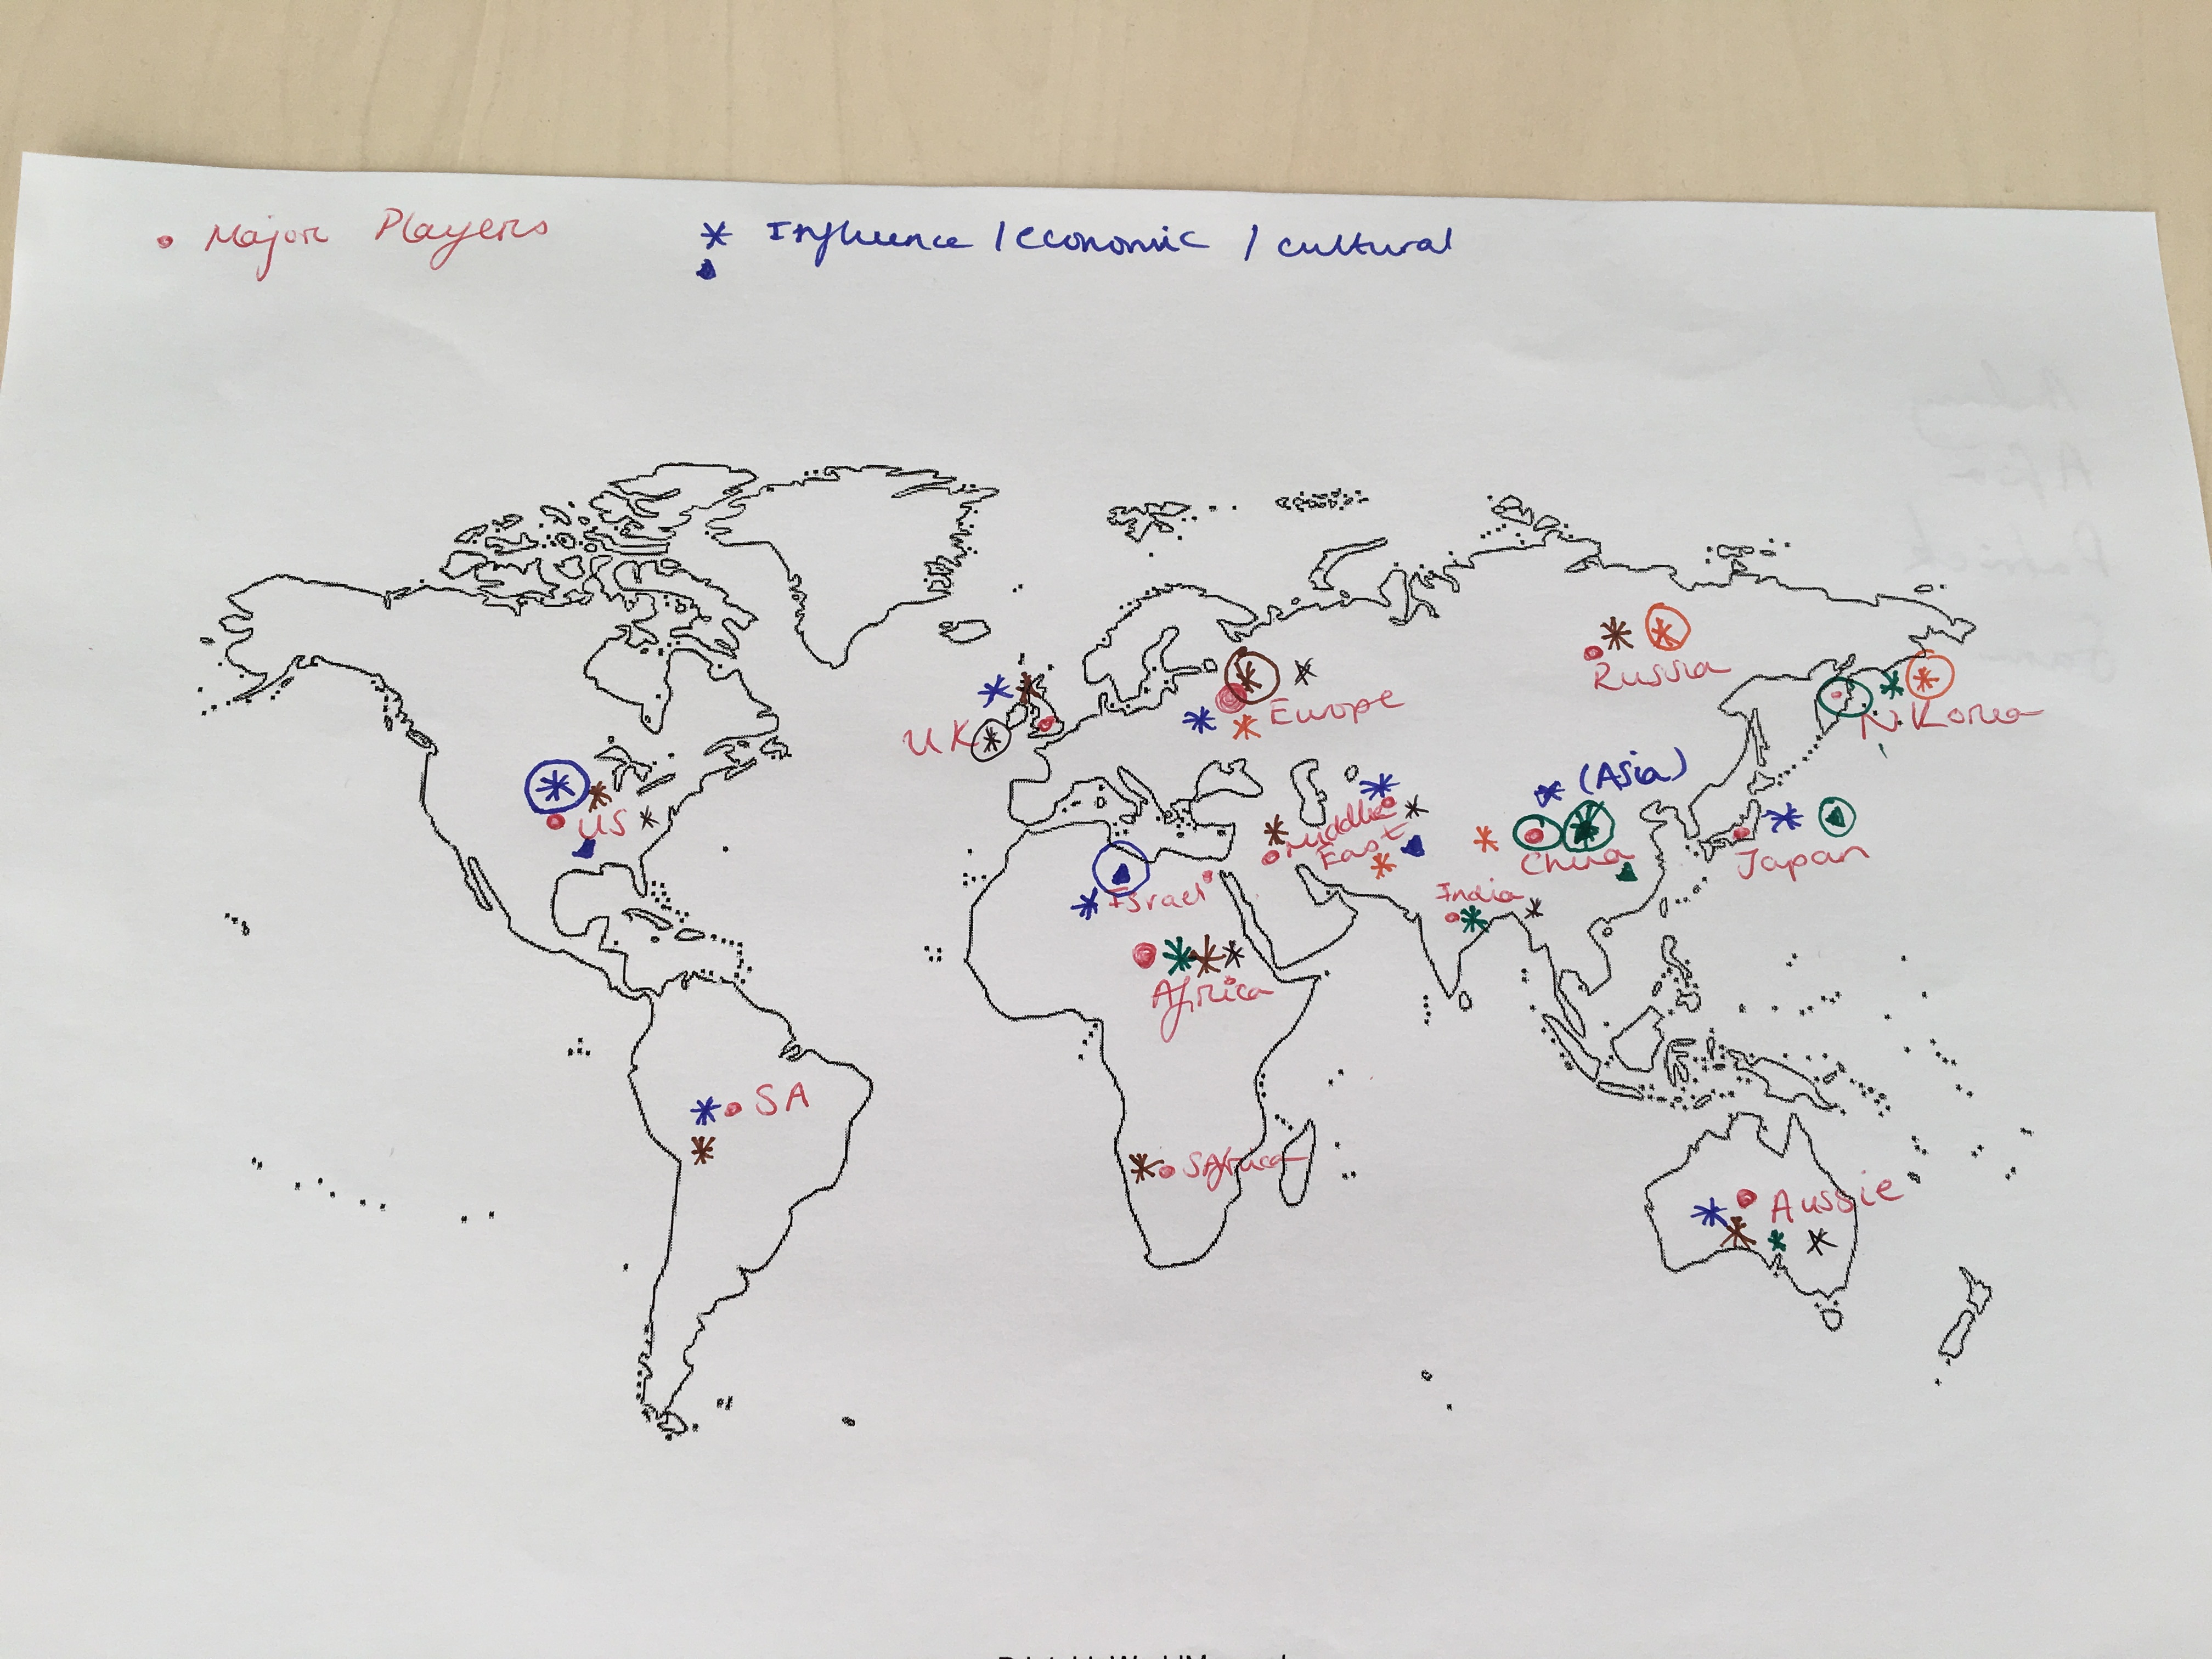 Major Players
Influence / economic / cultural
Russia
Europe
UK
N. Korea
(Asia)
US
Middle
East
China
Japan
India
Israel
Africa
SA
S Africa
Aussie